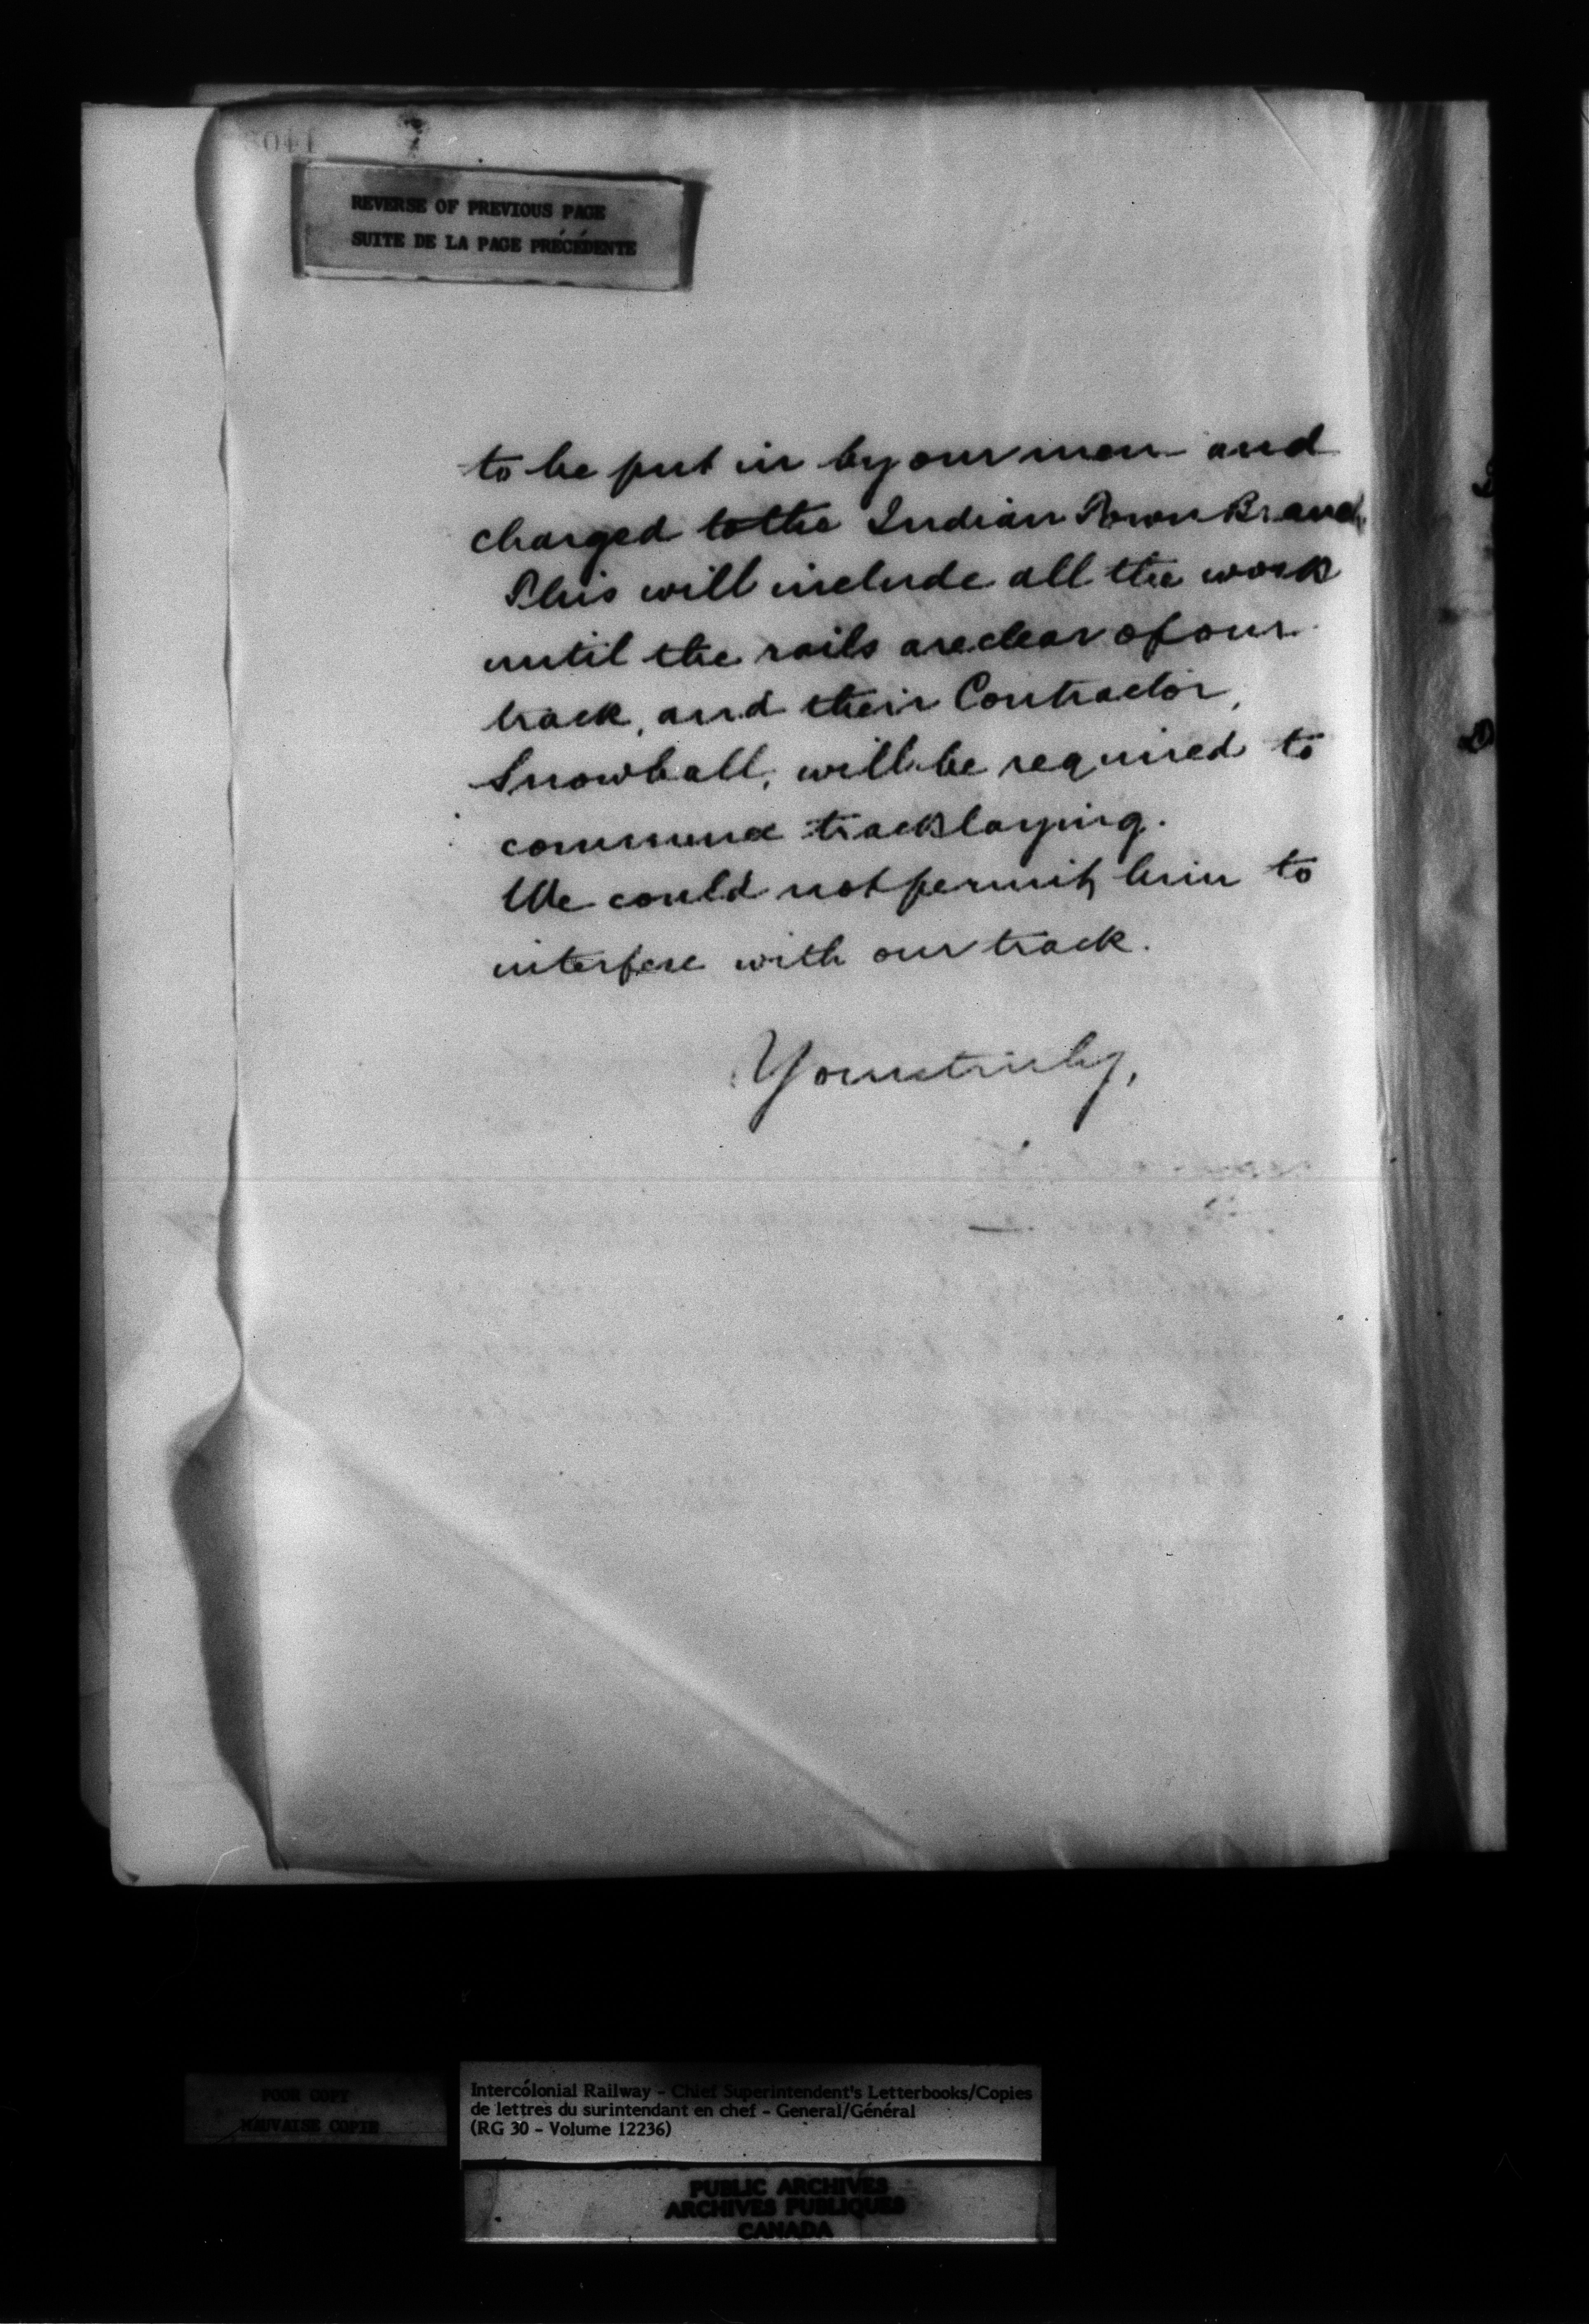 REVERSE OF PREVIOUS PAGE
SUITE DE LA PAGE PRÉCÉDENTE
to be put in by our men and
charged to the Indian Town Branch
This will include all the work
until the rails are clear of our
track, and their Contractor,
Snowball, will be required to
commence tracklaying.
We could not permit him to
interfere with our track.
Yours truly,
POOR COPY
MAUVAISE COPIE
Intercolonial Railway - Chief Superintendent's Letterbooks/Copies
de lettres du surintendant en chef - General/Général
(RG 30 - Volume 12236)
PUBLIC ARCHIVES
ARCHIVES PUBLIQUES
CANADA